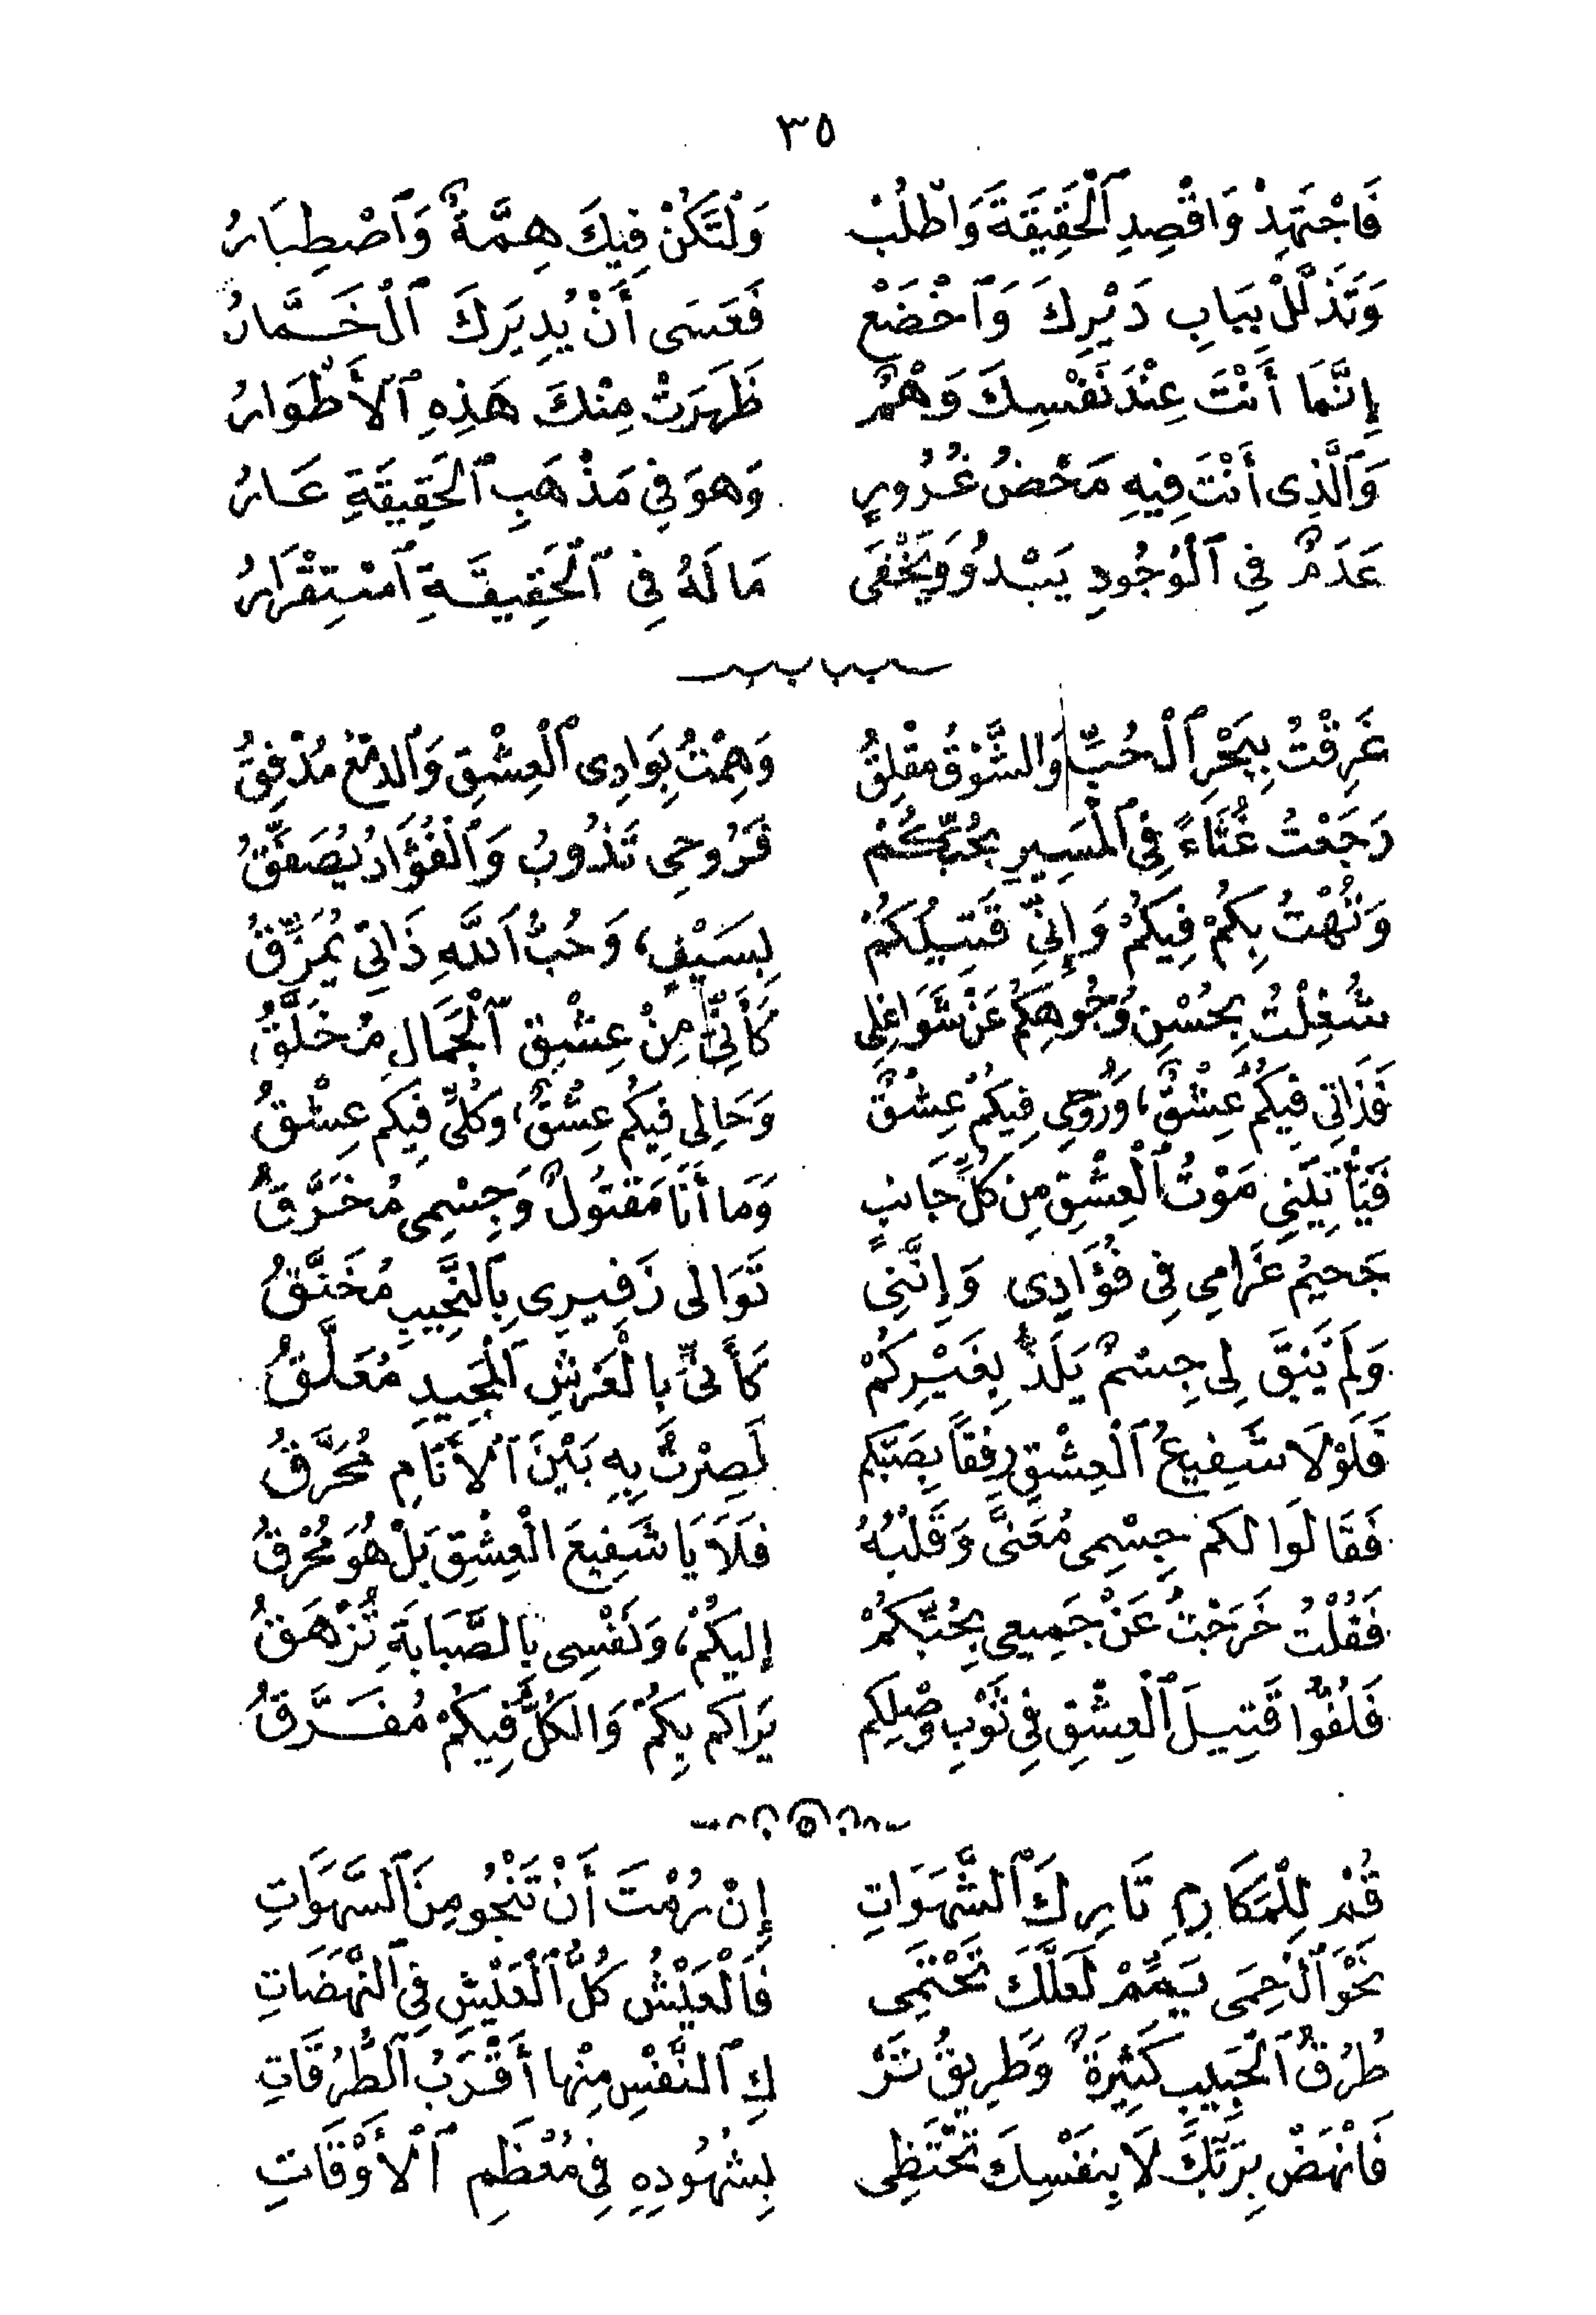 ٣٥
فَاجْتَهِدْ وَاقْصِدِ ٱلْحَقِيقَةَ وَاطْلُبْ وَلْتَكُنْ فِيكَ هِمَّةٌ وَٱصْطِبَارُ
وَتَذَلَّلْ بِبَابِ دَيْرِكَ وَٱخْضَعْ فَعَسَى أَنْ يُدِيرَكَ ٱلْخَمَّارُ
إِنَّمَا أَنْتَ عِنْدَ نَفْسِكَ وَهْمٌ ظَهَرَتْ مِنْكَ هَذِهِ ٱلْأَطْوَارُ
وَٱلَّذِى أَنْتَ فِيهِ مَحْضُ غُرُورٍ وَهوَ فِي مَذْهَبِ ٱلحَقِيقَةِ عَارُ
عَدَمٌ فِي ٱلْوُجُودِ يَبْدُو وَيَخْفَى مَا لَهُ فِي ٱلْحَقِيقَةِ ٱسْتِقْرَارُ
غَرِقْتُ بِبَحْرِ ٱلْحُبِّ وَالشَّوْقُ مُقْلِقُ وَهِمْتُ بِوَادِى ٱلْعِشْقِ وَٱلدمْعُ مُدْفِقُ
رَجَعْتُ غُثَاءً فِي ٱلْمَسِيرِ بِحُبِّكُمْ فَرُوحِى تَذُوبُ وَٱلْفُؤَادُ يُصَفِّقُ
وَتُهْتُ بِكُمْ فِيكُمْ وَإِنِّي قَتِيلُكُمْ بِسَيْفٍ، وَحُبُّ ٱللَّهِ ذَاتِي يُمَزِّقُ
شُغِلْتُ بِحُسْنِ وُجُوهِكُمْ عَنْ شَوَاغِلِي كَأَنِّي مِنْ عِشْقِ ٱلْجَمَالِ مُخَلَّقُ
فَذَاتِي فِيكُمْ عِشْقٌ، وَرُوحِي فِيكُمْ عِشْقٌ وَحَالِى فِيكُم عِشْقٌ، وَكُلِّي فِيكُم عِشْقُ
فَيَأْتِيَنِي مَوْتُ ٱلْعِشْقِ مِن كُلِّ جَانِبٍ وَمَا أَنَا مَقْتُولٌ وَجِسْمِى مُخَرَّقُ
جَحيمُ غَرَامِي فِي فُؤَادِى وَإِنَّنِي تَوَالى زَفِيرِى بِٱلنَّحِيبِ مُخَنَّقُ
وَلَمْ يَبْقَ لِى جِسْمٌ يَلَذُّ بِغَيْرِكُمْ كَأَنِّي بِالْعَرْشِ ٱلْمَجِيدِ مُعَلَّقُ
فَلَوْلَا شَفِيعُ ٱلْعِشْقِ رِفقًا بِصَبِّكم لَصِرْتُ بِهِ بَيْنَ ٱلْأَنَامِ مُحَرَّقُ
فَقَالُوا لكم جِسْمِى مُعَنًّى وَقَلْبُهُ فَلَا يَا شَفِيعَ الْعِشْقِ بَلْ هُوَ مُحْرِقُ
فَقُلْتُ خَرَجْتُ عَنْ جَمِيعِي بِحُبِّكُمْ إِليكُمْ، وَنَفْسِى بِالصَّبَابَةِ تُزْهَقُ
فَلُفُّوا قَتِيلَ ٱلْعِشْقِ فِي ثَوْبِ وَصْلِكم يَرَاكم بِكُمْ وَالكُلُّ فِيكُمْ مُفَرَّقُ
قُمْ لِلْمَكَارِمِ تَارِكَ ٱلْشَّهَوَاتِ إِنْ رُمْتَ أَنْ تَنْجُو مِنَ ٱلسَّهَوَاتِ
نَحْوَ ٱلْحِمَى يَمِّمْ لَعَلَّكَ تَحْتَمِى فَٱلْعَيْشُ كُلُّ ٱلْعَيْشِ فِي ٱلنَّهَضَاتِ
طُرُقُ ٱلْحَبِيبِ كَثِيرَةٌ وَطَرِيقُ تَرْ كِ ٱلنَّفْسِ مِنْها أَقْرَبُ ٱلطُّرُقَاتِ
فَانْهَضْ بِرَبِّكَ لَا بِنَفْسِكَ تَحْتَظِى بِشُهُودِهِ فِي مُعْظَمِ ٱلْأَوْقَاتِ